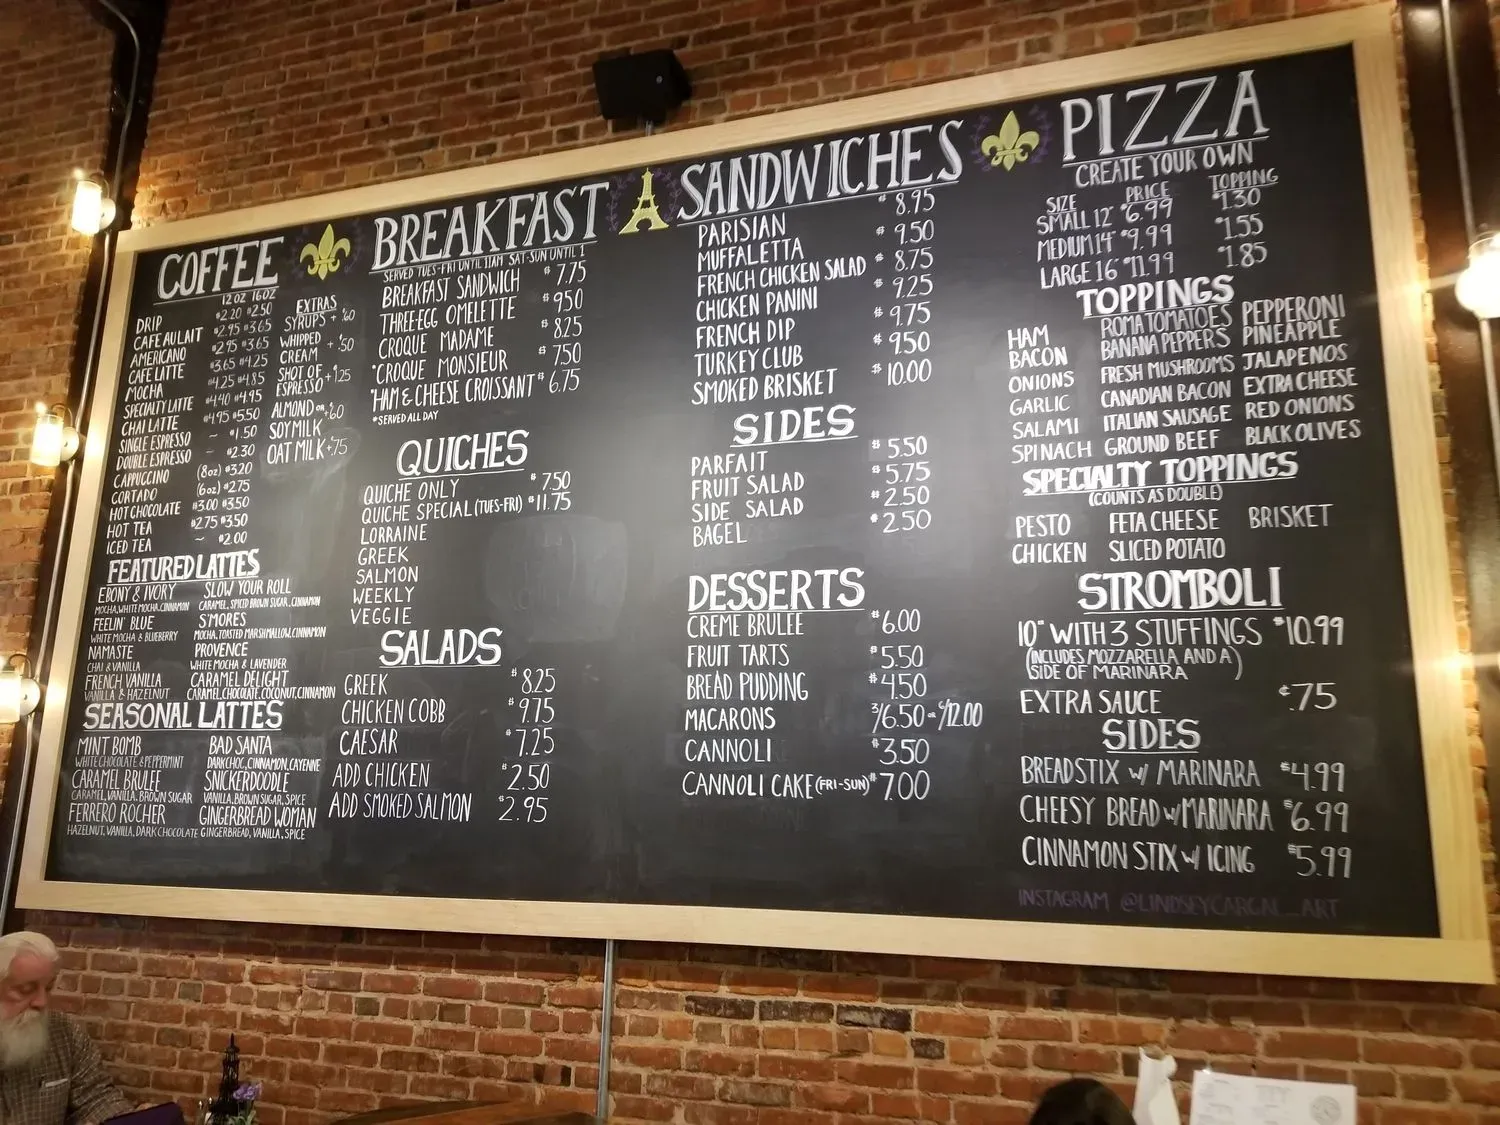 COFFEE
12 OZ 16 OZ
DRIP $2.20 $2.50
CAFE AU LAIT $2.95 $3.65
AMERICANO $2.95 $3.65
CAFE LATTE $3.65 $4.25
MOCHA $4.25 $4.85
SPECIALTY LATTE $4.40 $4.95
CHAI LATTE $4.95 $5.50
SINGLE ESPRESSO ~ $1.50
DOUBLE ESPRESSO ~ $2.30
CAPPUCCINO (8oz) $3.20
CORTADO (6oz) $2.75
HOT CHOCOLATE $3.00 $3.50
HOT TEA $2.75 $3.50
ICED TEA ~ $2.00
EXTRAS
SYRUPS + $.60
WHIPPED
CREAM + $.50
SHOT OF
ESPRESSO + $1.25
ALMOND OR
SOY MILK +$.60
OAT MILK +$.75
FEATURED LATTES
EBONY & IVORY
MOCHA, WHITE MOCHA, CINNAMON
FEELIN' BLUE
WHITE MOCHA & BLUEBERRY
NAMASTE
CHAI & VANILLA
FRENCH VANILLA
VANILLA & HAZELNUT
SLOW YOUR ROLL
CARAMEL, SPICED BROWN SUGAR, CINNAMON
S'MORES
MOCHA, TOASTED MARSHMALLOW, CINNAMON
PROVENCE
WHITE MOCHA & LAVENDER
CARAMEL DELIGHT
CARAMEL, CHOCOLATE, COCONUT, CINNAMON
SEASONAL LATTES
MINT BOMB
WHITE CHOCOLATE & PEPPERMINT
CARAMEL BRULEE
CARAMEL, VANILLA, BROWN SUGAR
FERRERO ROCHER
HAZELNUT, VANILLA, DARK CHOCOLATE
BAD SANTA
DARK CHOC, CINNAMON, CAYENNE
SNICKERDOODLE
VANILLA, BROWN SUGAR, SPICE
GINGERBREAD WOMAN
GINGERBREAD, VANILLA, SPICE
BREAKFAST
SERVED TUES-FRI UNTIL 11AM SAT-SUN UNTIL 1
BREAKFAST SANDWICH $7.75
THREE-EGG OMELETTE $9.50
CROQUE MADAME $8.25
*CROQUE MONSIEUR $7.50
*HAM & CHEESE CROISSANT $6.75
*SERVED ALL DAY
QUICHES
QUICHE ONLY $7.50
QUICHE SPECIAL (TUES-FRI) $11.75
LORRAINE
GREEK
SALMON
WEEKLY
VEGGIE
SALADS
GREEK $8.25
CHICKEN COBB $9.75
CAESAR $7.25
ADD CHICKEN $2.50
ADD SMOKED SALMON $2.95
SANDWICHES
PARISIAN $8.95
MUFFALETTA $9.50
FRENCH CHICKEN SALAD $8.75
CHICKEN PANINI $9.25
FRENCH DIP $9.75
TURKEY CLUB $9.50
SMOKED BRISKET $10.00
SIDES
PARFAIT $5.50
FRUIT SALAD $5.75
SIDE SALAD $2.50
BAGEL $2.50
DESSERTS
CREME BRULEE $6.00
FRUIT TARTS $5.50
BREAD PUDDING $4.50
MACARONS 3/6.50 OR 6/12.00
CANNOLI $3.50
CANNOLI CAKE (FRI-SUN) $7.00
PIZZA
CREATE YOUR OWN
SIZE PRICE TOPPING
SMALL 12" $6.99 $1.30
MEDIUM 14" $9.99 $1.55
LARGE 16" $11.99 $1.85
TOPPINGS
HAM ROMA TOMATOES PEPPERONI
BACON BANANA PEPPERS PINEAPPLE
ONIONS FRESH MUSHROOMS JALAPENOS
GARLIC CANADIAN BACON EXTRA CHEESE
SALAMI ITALIAN SAUSAGE RED ONIONS
SPINACH GROUND BEEF BLACK OLIVES
SPECIALTY TOPPINGS
(COUNTS AS DOUBLE)
PESTO FETA CHEESE BRISKET
CHICKEN SLICED POTATO
STROMBOLI
10" WITH 3 STUFFINGS $10.99
(INCLUDES MOZZARELLA AND A
SIDE OF MARINARA)
EXTRA SAUCE ¢.75
SIDES
BREADSTIX w/ MARINARA $4.99
CHEESY BREAD w/ MARINARA $6.99
CINNAMON STIX w/ ICING $5.99
INSTAGRAM